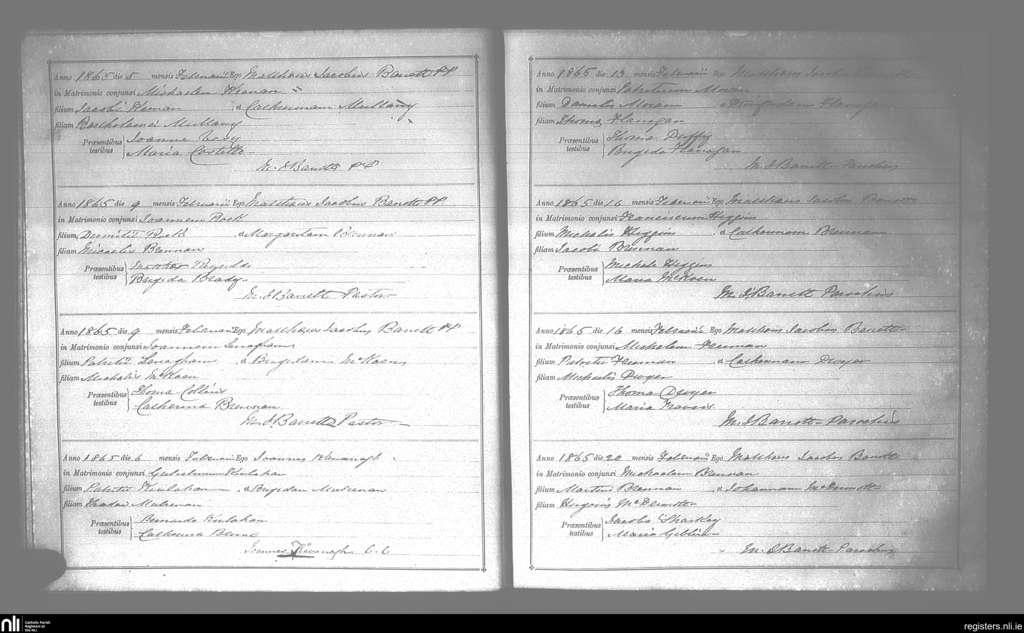 Anno 1865 die 5 mensis Februarii Ego Matthaeus Jacobus Barrett PP
in Matrimonio conjunxi Michaelem Heenan
filium Jacobi Heenan a Catherinam Mullany
filiam Bartholomei Mullany
Præsentibus testibus Joanne
Maria Costello
M. J. Barrett PP
Anno 1865 die 9 mensis Februarii Ego Matthaeus Jacobus Barrett PP
in Matrimonio conjunxi Joannem
filium a Margaritam Brennan
filiam Michaelis Brennan
Præsentibus testibus Reynolds
Brigida Brady
M. J. Barrett Pastor
Anno 1865 die 9 mensis Februarii Ego Matthaeus Jacobus Barrett PP
in Matrimonio conjunxi Joannem Lenaghan
filium Patritii Lenaghan a Brigidam McKeon
filiam Michaelis McKeon
Præsentibus testibus Thoma Collins
Catherina Brennan
M. J. Barrett Pastor
Anno 1865 die 6 mensis Februarii Ego Joannes Kavanagh
in Matrimonio conjunxi Gulielmum Kinlahan
filium Patritii Kinlahan a Brigidam Mulrenan
filiam Thadei Mulrenan
Præsentibus testibus Bernardo Kinlahan
Catherina Beirne
Joannes Kavanagh C.C
Anno 1865 die 13 mensis Februarii Ego Matthaeus Jacobus
in Matrimonio conjunxi Patritium Moran
filium Danielis Moran a
filiam Thoma Flanagan
Præsentibus testibus Thoma Duffy
Brigida Flanagan
M. J. Barrett Parochus
Anno 1865 die 16 mensis Februarii Ego Matthaeus Jacobus Barrett
in Matrimonio conjunxi Franciscum Higgins
filium Michaelis Higgins a Catherinam Brennan
filiam Jacobi Brennan
Præsentibus testibus Michaele Higgins
Maria
M. J. Barrett Parochus
Anno 1865 die 16 mensis Februarii Ego Matthaeus Jacobus Barrett
in Matrimonio conjunxi Michaelem Heenan
filium Heenan a Catherinam Dwyer
filiam Michaelis Dwyer
Præsentibus testibus Thoma Dwyer
Maria
M. J. Barrett Parochus
Anno 1865 die 20 mensis Februarii Ego Matthaeus Jacobus Barrett
in Matrimonio conjunxi Michaelem Brennan
filium Martini Brennan a Johannam McDermott
filiam McDermott
Præsentibus testibus Jacobo Sharkey
Maria Giblin
M. J. Barrett Parochus
nli Catholic Parish
Registers at
the NLI
registers.nli.ie